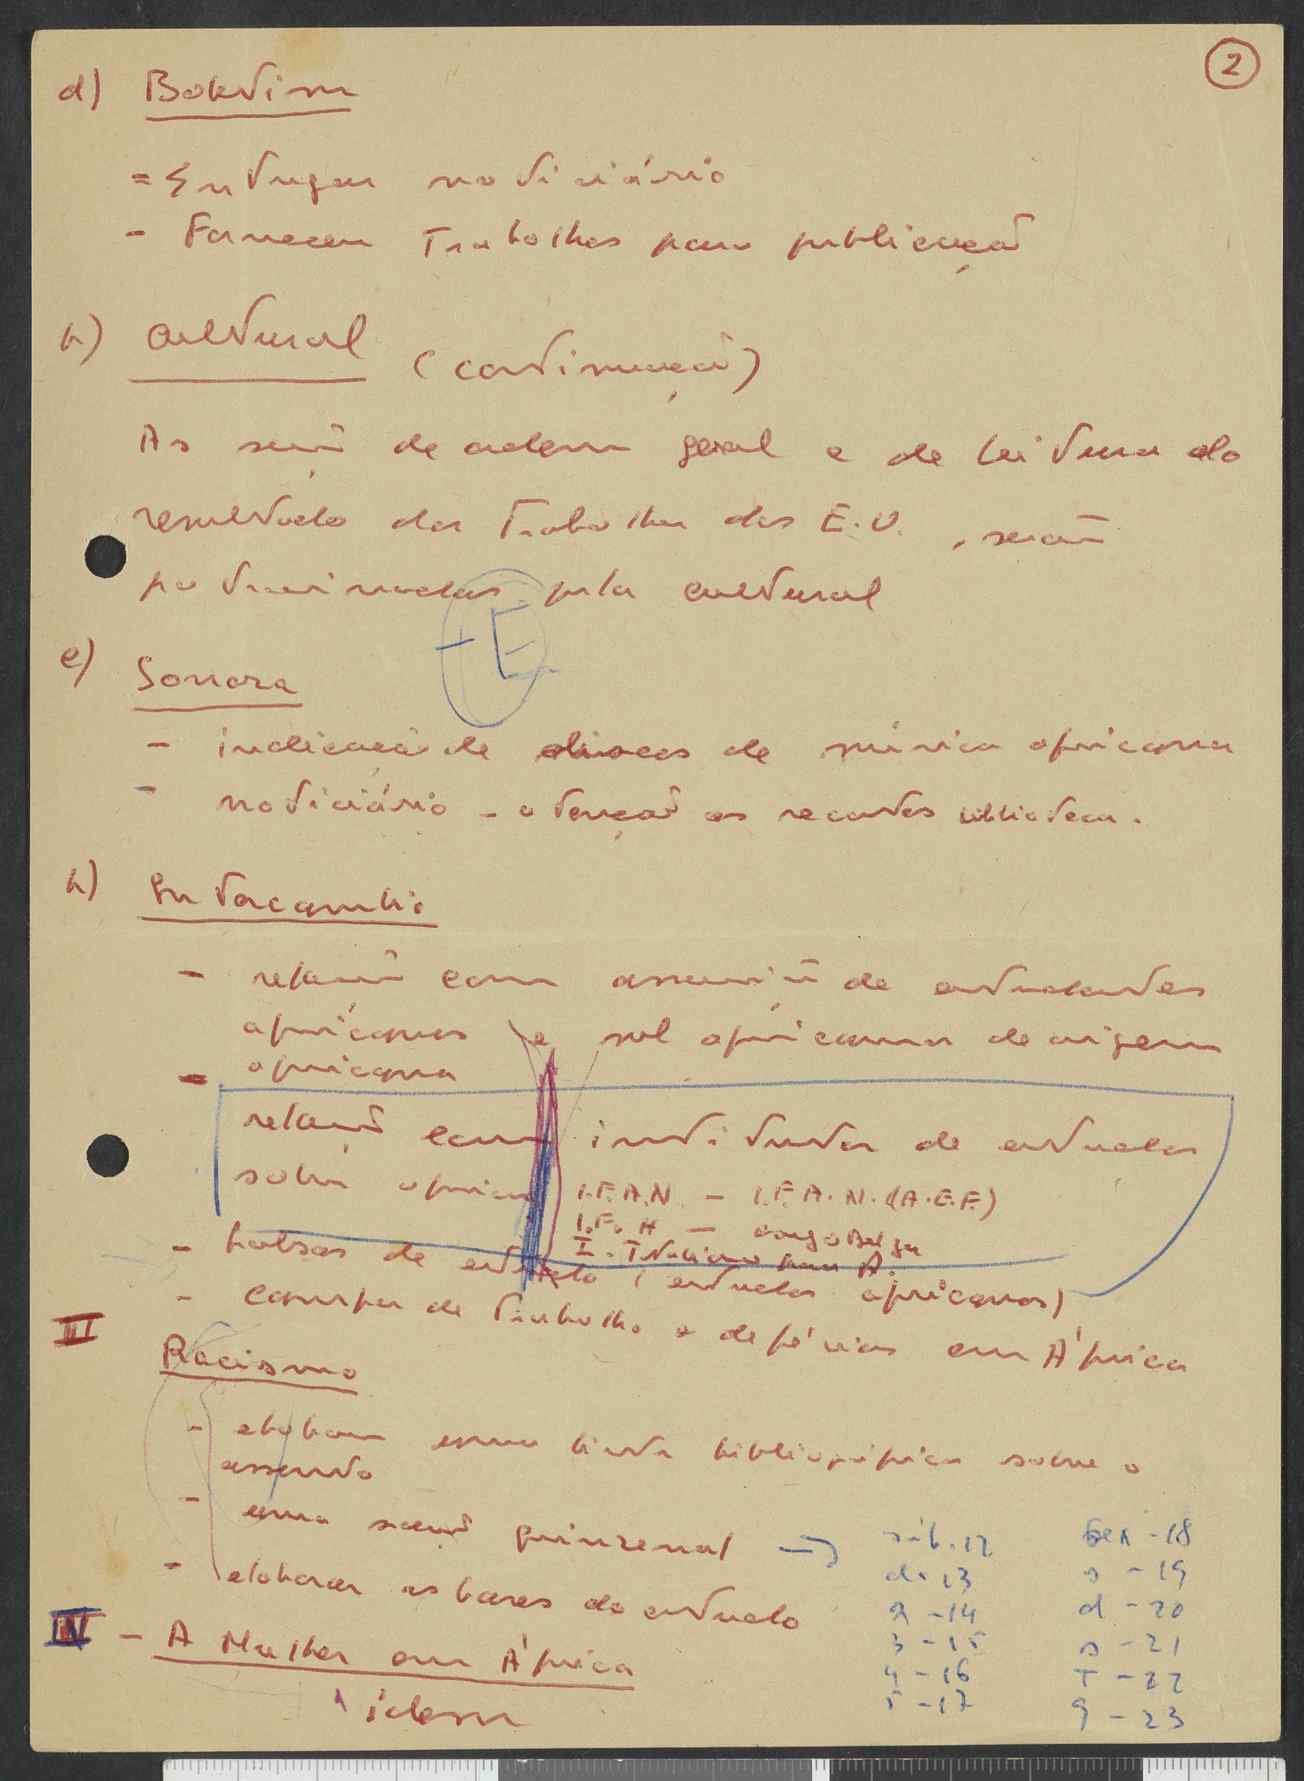 2
d) Boletim
= Entregar noticiário
- Fornecer Trabalhos para publicação
h) Cultural (continuação)
As sessões de ordem geral e de leitura do
resultado dos Trabalhos dos E.U., serão
patrocinadas pela cultural
E
e) Sonora
- indicação de discos de música africana
- noticiário - atenção os recortes biblioteca.
h) Intercambio
- relações com associações de estudantes
africanos e sul africanos de origem
africana
- relações com institutos de estudos
sobre africa I.F.A.N. - I.F.A.N. (A.E.F.)
I.F. A - Congo Belga
I. Italiano para A.
- bolsas de estudo (estudos africanos)
- campos de Trabalho e de férias em África
III
Racismo
- elaborar uma lista bibliográfica sobre o
assunto
- uma sessão quinzenal → sáb. 12 sex - 18
d. 13 s - 19
- elaborar as bases do estudo
2 - 14 d - 20
3 - 15 s - 21
IV - A Mulher em África
4 - 16 T - 22
5 - 17 q - 23
idem